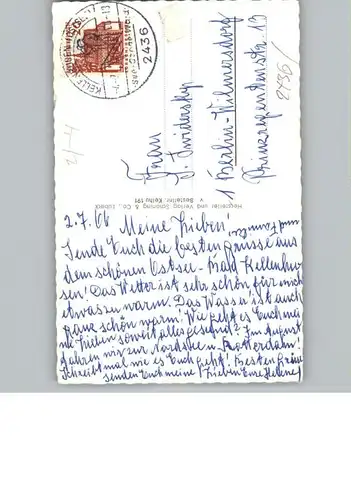 KELLENHUSEN
2436
2436
Frau
S. Swidersky
1 Berlin-Wilmersdorf
Prinzregentenstr. 19
Hersteller und Verlag Schöning & Co., Lübeck
Bestellnr. Kelhs 191
2.7.66 Meine Lieben!
und Familie
Sende Euch die besten Grüsse aus
dem schönen Ostsee-Bad Kellenhu-
sen! Das Wetter ist sehr schön für mich
etwas zu warm. Das Wasser ist auch
ganz schön warm! Wie geht es Euch mei-
ne Lieben soweit alles gesund? Im August
fahren wir zur Nordsee n. Rotterdam!
Schreibt mal wie es Euch geht! Besten Grüsse
senden Euch meine Lieben Eure Helene